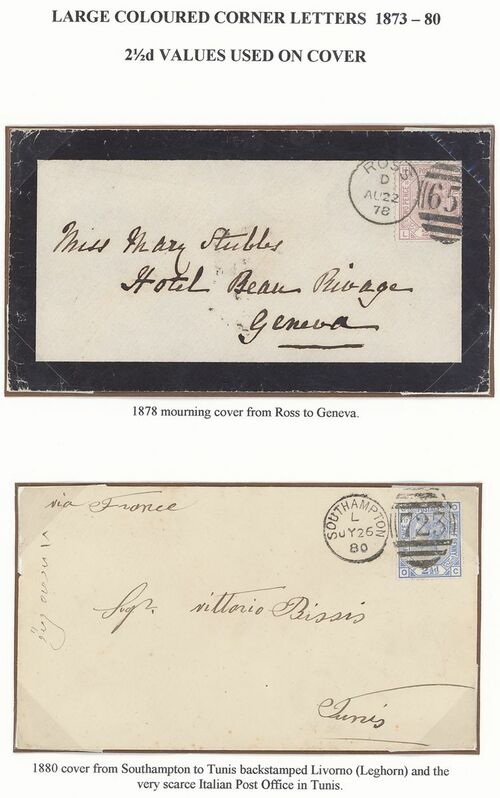 LARGE COLOURED CORNER LETTERS 1873 – 80
2½d VALUES USED ON COVER
ROSS
D
AU 22
78
65
Miss Mary Stubbs
Hotel Beau Rivage
Geneva
1878 mourning cover from Ross to Geneva.
via France
SOUTHAMPTON
L
JY 26
80
723
O G
2½d
Sigr. Vittorio Bissis
Tunis
1880 cover from Southampton to Tunis backstamped Livorno (Leghorn) and the
very scarce Italian Post Office in Tunis.